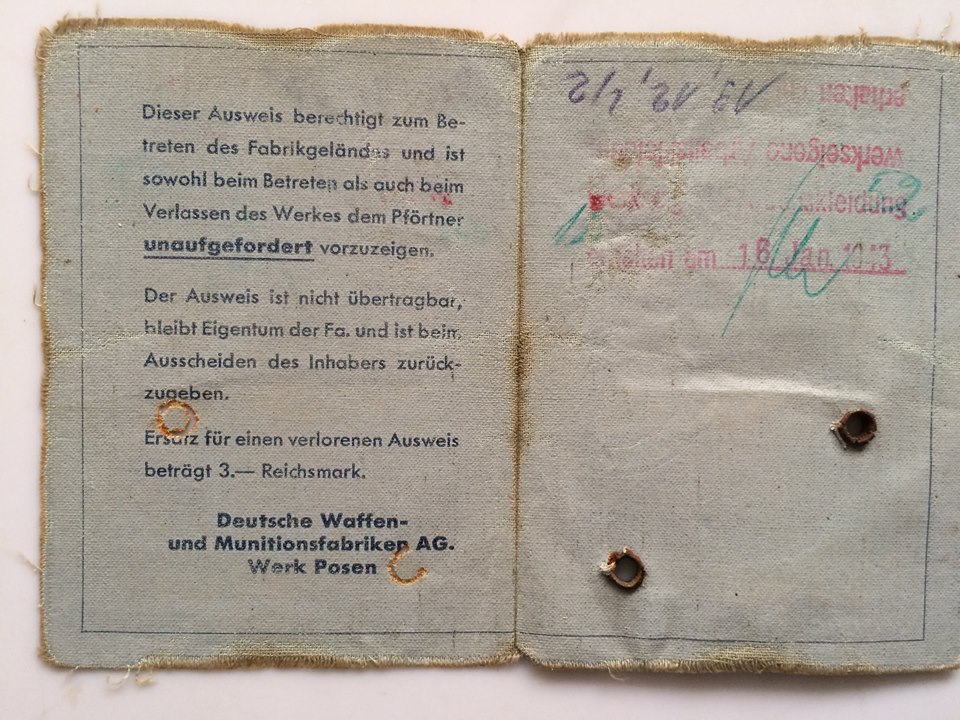 Dieser Ausweis berechtigt zum Be-
treten des Fabrikgeländes und ist
sowohl beim Betreten als auch beim
Verlassen des Werkes dem Pförtner
unaufgefordert vorzuzeigen.
Der Ausweis ist nicht übertragbar,
bleibt Eigentum der Fa. und ist beim
Ausscheiden des Inhabers zurück-
zugeben.
Ersatz für einen verlorenen Ausweis
beträgt 3.— Reichsmark.
Deutsche Waffen-
und Munitionsfabriken AG.
Werk Posen
werkseigene
erhalten am
erhalten am 16. Jan. 1943